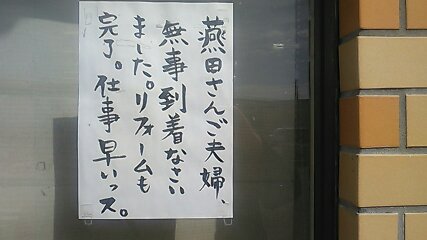 燕田さんご夫婦、
無事到着なさい
ました。リフォームも
完了。仕事早いっス。